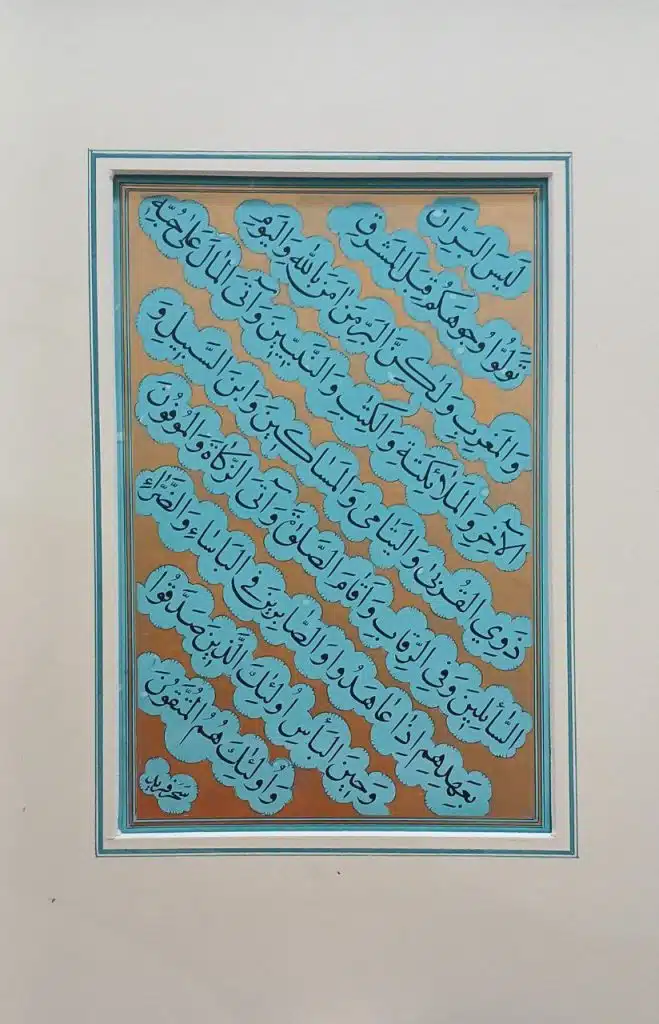 لَيْسَ البِرَّ أَنْ
تُوَلُّوا وُجُوهَكُمْ قِبَلَ المَشْرِقِ
وَالمَغْرِبِ وَلٰكِنَّ البِرَّ مَنْ اٰمَنَ بِاللهِ وَاليَوْمِ
الآخِرِ وَالمَلَائِكَةِ وَالكِتٰبِ وَالنَّبِيّٖنَ وَآتَى المَالَ عَلىٰ حُبِّهِ
ذَوِي القُرْبىٰ وَاليَتَامىٰ وَالمَسَاكِينَ وَابْنَ السَّبِيلِ وَ
السَّائِلِينَ وَفِي الرِّقَابِ وَاَقَامَ الصَّلٰوةَ وَآتَى الزَّكَاةَ وَالمُوفُونَ
بِعَهْدِهِم اِذَا عَاهَدُوا وَالصَّابِرِينَ فِي البَاسَاءِ وَالضَّرَّاءِ
وَحِينَ البَأْسِ اُولٰئِكَ الَّذِينَ صَدَقُوا
وَاُولٰئِكَ هُمُ المُتَّقُونَ